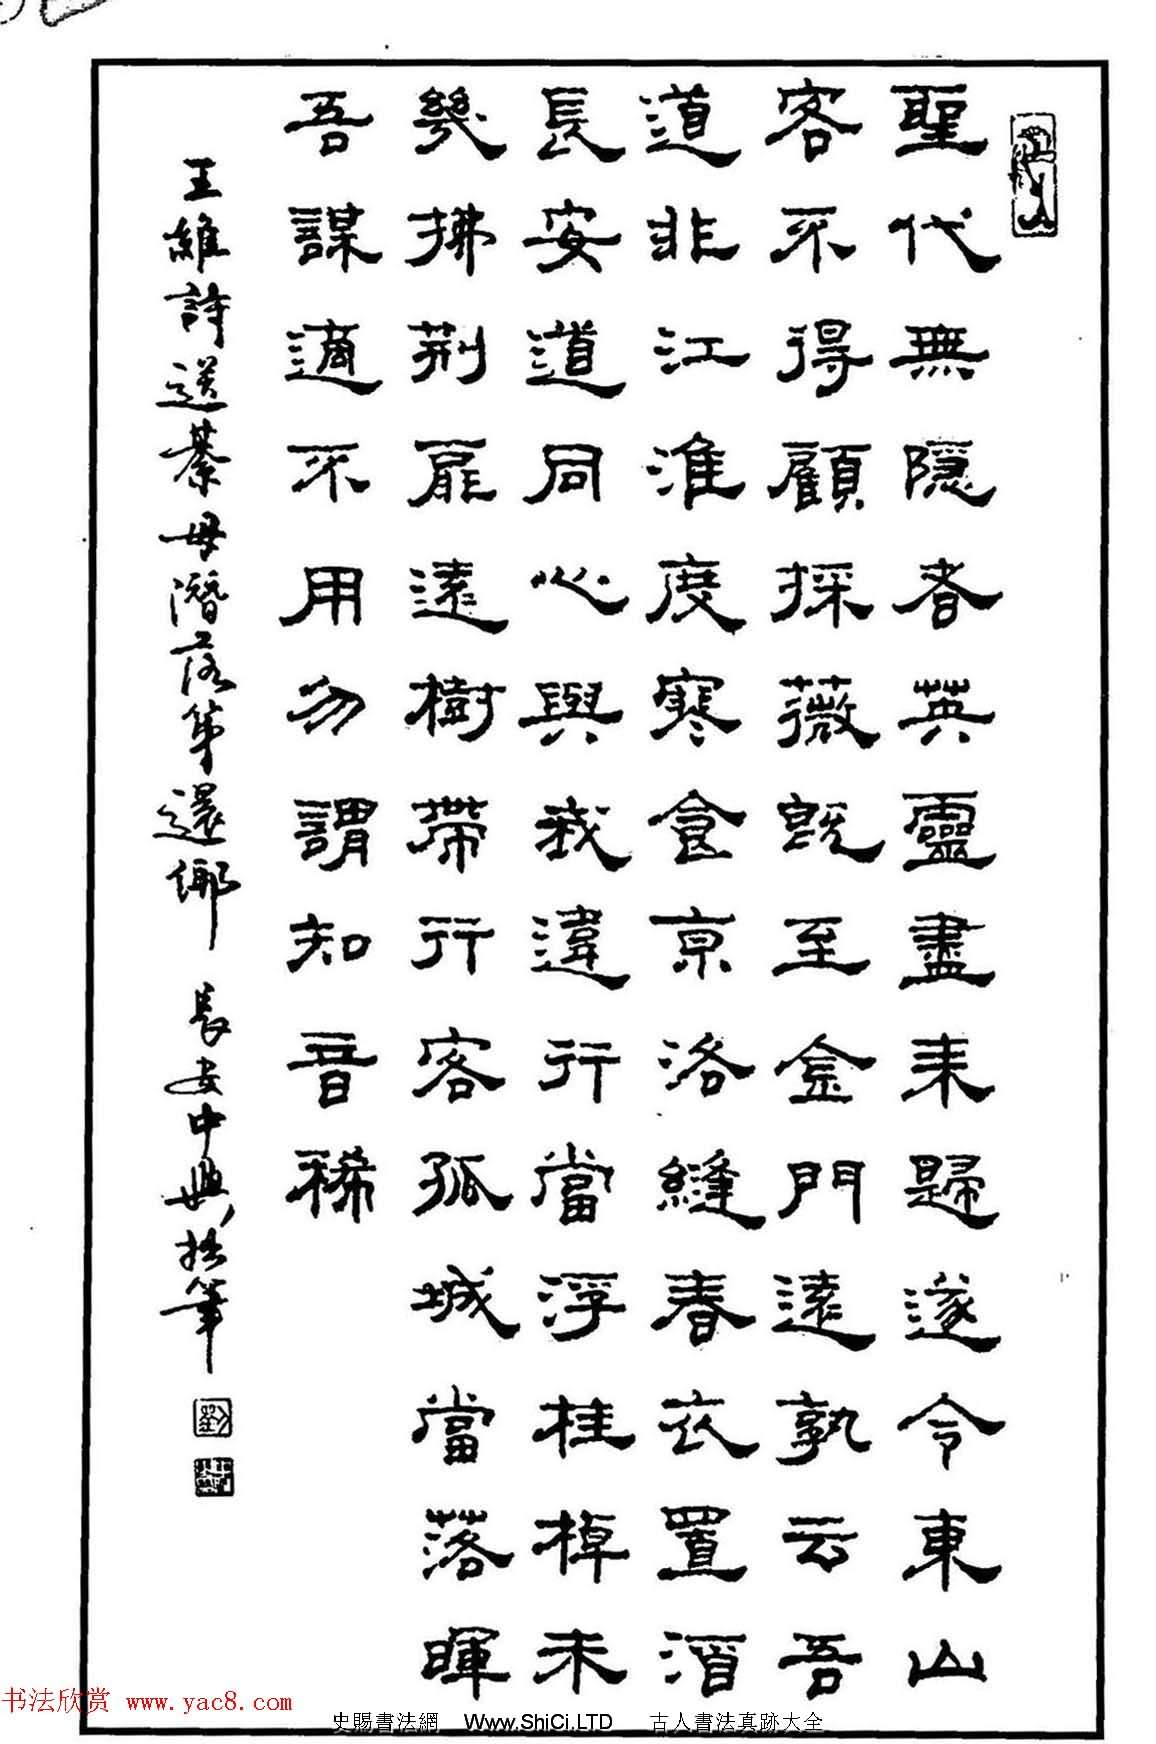 聖代無隱者英靈盡来歸遂令東山
客不得顧採薇既至金門遠孰云吾
道非江淮度寒食京洛縫春衣置酒
長安道同心與我違行當浮桂棹未
幾拂荊扉遠樹帶行客孤城當落暉
吾謀適不用勿謂知音稀
王維詩送綦母潛落第還鄉 長安中興拙筆
劉
书法欣赏 www.yac8.com
史賜書法網 Www.ShiCi.LTD 古人書法真跡大全